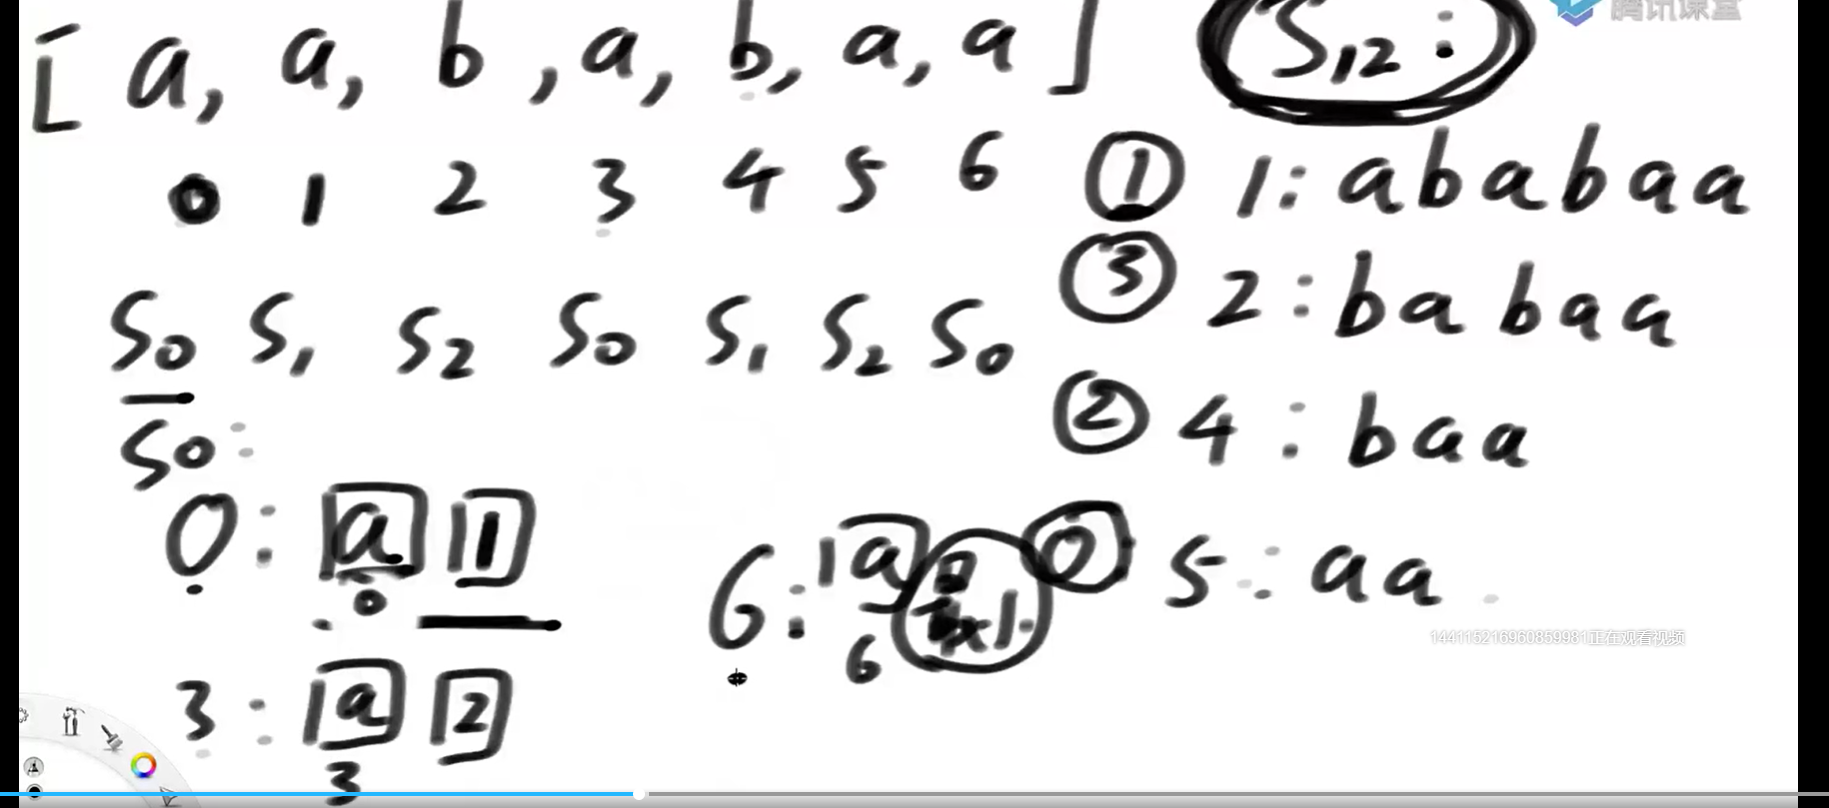 [ a, a, b, a, b, a, a ]
0 1 2 3 4 5 6
S0 S1 S2 S0 S1 S2 S0
S0:
0: a 1
0
3: a 2
3
6: a
6
S12:
① 1: ababaa
③ 2: babaa
② 4: baa
⓪ 5: aa
腾讯课堂
144115216960859931正在观看视频